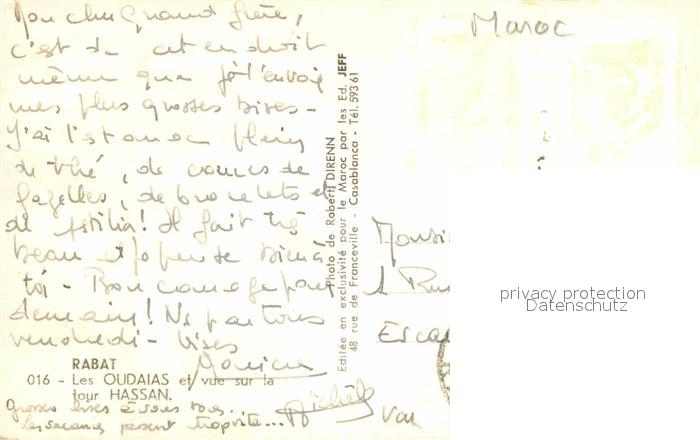 Mon cher Grand frère,
c'est de cet endroit
même que je t'envoie
mes plus grosses bises -
J'ai l'estomac plein
de thé, de cornes de
gazelles, de bracelets et
de
! Il fait très
beau et je pense bien à
toi - Bon courage pour
demain !
vendredi - bises
Monique
RABAT
016 - Les OUDAIAS et vue sur la
tour HASSAN.
Grosses bises à vous tous.
les vacances passent trop vite... Michèle
Photo de Robert DIRENN
Editée en exclusivité pour le Maroc par les Ed. JEFF
48 rue de Franceville - Casablanca - Tél. 593 61
Maroc
Monsi
privacy protection
Datenschutz
Var